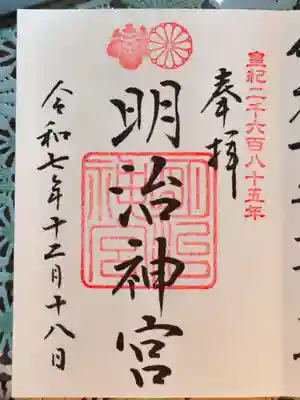 皇紀二千六百八十五年
奉拝
明治神宮
明治神宮
令和七年十二月十八日